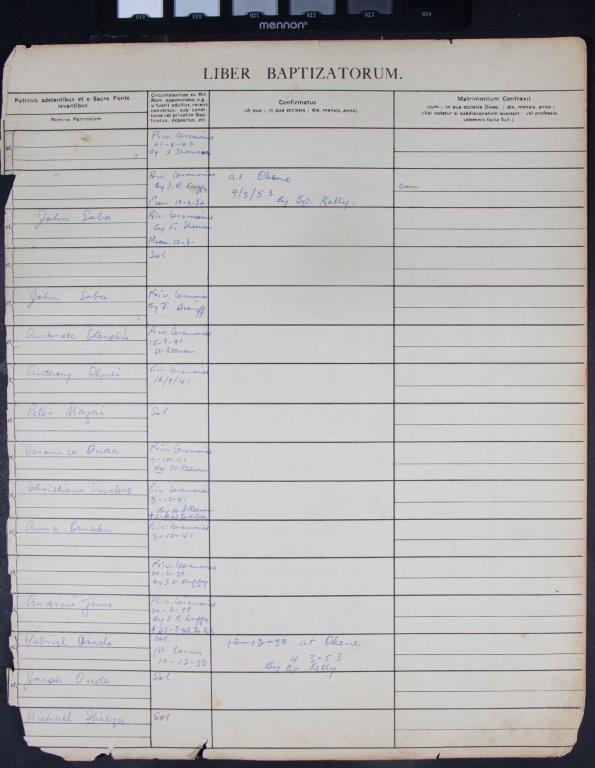 019 020 021 022 023 024
mennon
LIBER BAPTIZATORUM.
Patrinis adstantibus et e Sacro Fonte
levantibus
Nomina Patrinorum
Circumstantiae ex Rit.
Rom. apponendae, e.g.,
si fuerit adultus, recens
conversus; sub condi-
tione vel privatim Bap-
tizatus, expositus, etc.
Confirmatus
(A quo; in qua ecclesia; die, mensis, anno)
Matrimonium Contraxit
(cum; in qua ecclesia Dioec.; die, mensis, anno)
(Vel notetur si subdiaconatum suscepit vel professio
solemnis facta fuit.)
et
Priv. Ceremonies
21-8-40
Priv. Ceremonies
By J. R. Duffy
10-6-52
at Okene
4/3/53
By Bp. Kelly.
John Saba
Priv. Ceremonies
By Fr.
Sol
John Saba
Priv. Ceremonies
By F.
Ambrose Otonoku
Priv. Ceremonies
15-9-41
W. Keenan
Anthony
Priv. Ceremonies
16/9/41
Peter Mazai
Sol
Veronica Onda
Priv. Ceremonies
3-10-41
By W. Keenan
Christiana
Priv. Ceremonies
3-10-41
By W. J. Keenan
Anna Omaku
Priv. Ceremonies
3-10-41
Priv. Ceremonies
20-6-39
By J. R. Duffy
Andrew
Priv. Ceremonies
20-6-39
By J. R. Duffy
Gabriel Onda
Sol
1st Comm
10-12-50
10-12-50 at Okene
4-3-53
By Bp. Kelly
Jacob Onda
Sol
Michael
Sol